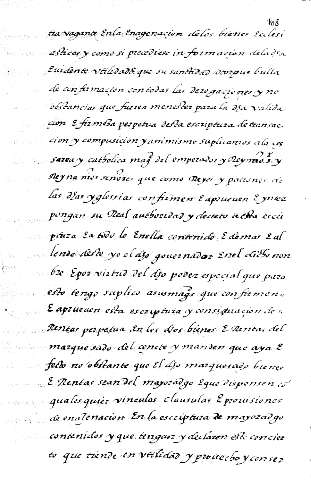 108
tra vagante En la Enagenacion de los bienes Eclesi
asticos y como si precediese informacion de la dha
Evidente Utilidad & que su santidad otorgue bulla
de confirmacion con todas las derogaciones y no
obstancias que fueren menester para la dha valida
cion E firmeza perpetua desta escriptura de transac
cion y composicion y asimismo suplicamos a la ce
sarea y catholica magd del emperador y Reyna nros
señores que como Reyes y patrones de
las dhas yglesias confirmen E aprueven E ynter
pongan su Real authoridad y decreto a esta escri
ptura En todo lo En ella contenido E demas E al
lende desto yo el dho governador En el dicho nom
bre E por virtud del dho poder especial que para
esto tengo suplico a sus magds que confirmen
E aprueven esta escriptura y consignacion de
Rentas perpetua En los dhos bienes E Rentas del
marquesado del cenete y manden que aya E
fecto no obstante que El dho marquesado bienes
E Rentas sean del mayorazgo E que dispensen
quales quier vinculos clausulas E provisiones
de enagenacion En la escriptura de mayorazgo
contenidos y que tengan y declaren este concier
to que tiende en utilidad y provecho y conser